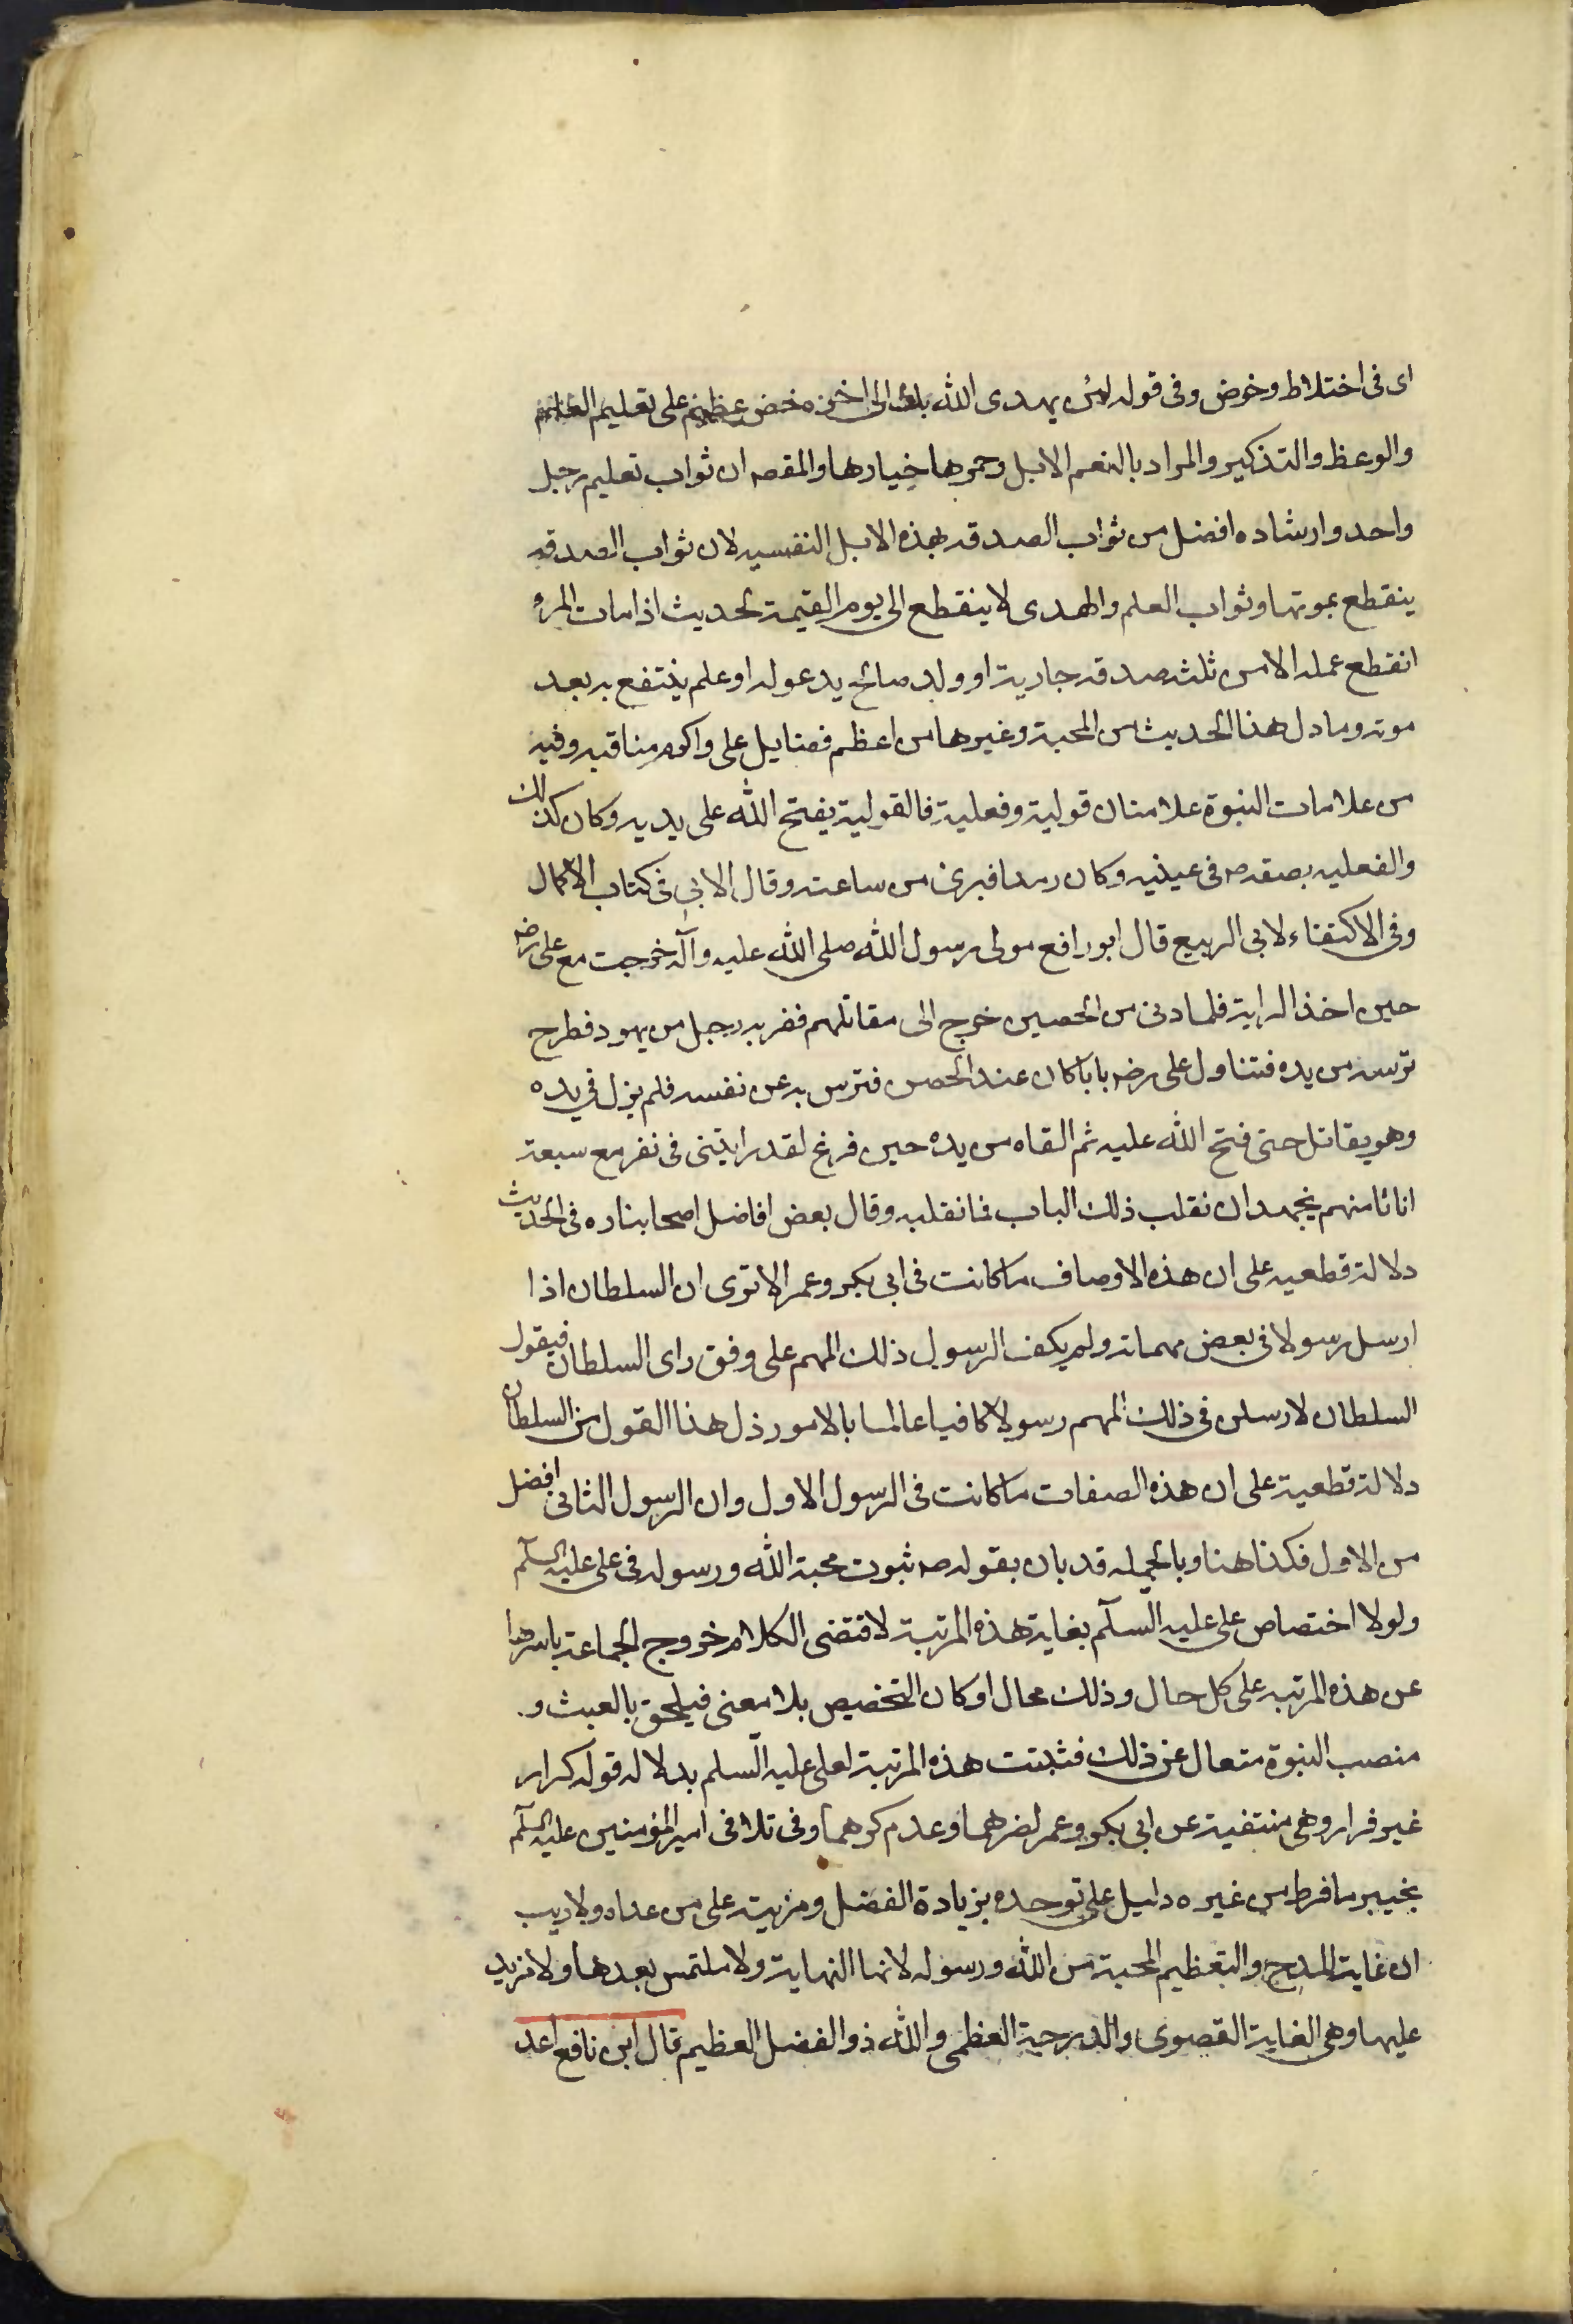 اى فى اختلاط وخوض وفى قوله لئن يهدى الله بك الى اخره حض عظيم على تعليم العلم
والوعظ والتذكير والمراد بالنعم الابل وحمرها خيارها والمقصه ان ثواب تعليم رجل
واحد وارشاده افضل من ثواب الصدقه بهذه الابل النفسيه لان ثواب الصدقه
ينقطع بموتها وثواب العلم والهدى لا ينقطع الى يوم القيمة لحديث اذا مات المرء
انقطع عمله الا من ثلث صدقه جارية او ولد صالح يدعوله او علم ينتفع به بعد
موته وما دل هذا الحديث من المحبة وغيرها من اعظم فضايل على واكرم مناقبه وفيه
من علامات النبوة علامتان قولية وفعلية فالقولية يفتح الله على يديه وكان كذلك
والفعليه بصقه صه فى عينيه وكان رمدا فبرئ من ساعته وقال الابى فى كتاب الاكمال
وفى الاكتفاء لابى الربيع قال ابو رافع مولى رسول الله صلى الله عليه وآله خرجت مع على رضه
حين اخذ الراية فلما دنى من الحصين خرج الى مقاتلهم فضربه رجل من يهود فطرح
ترسه من يده فتناول على رضه بابا كان عند الحصن فترس به عن نفسه فلم يزل فى يده
وهو يقاتل حتى فتح الله عليه ثم القاه من يده حين فرغ لقد رايتنى فى نفر مع سبعة
انا ثامنهم نجهد ان نقلب ذلك الباب فما نقلبه وقال بعض افاضل اصحابنا ره فى الحديث
دلالة قطعيه على ان هذه الاوصاف ما كانت فى ابى بكر وعمر الا ترى ان السلطان اذا
ارسل رسولا فى بعض مهماته ولم يكف الرسول ذلك المهم على وفق راى السلطان فيقول
السلطان لارسلن فى ذلك المهم رسولا كافيا عالما بالامور دل هذا القول من السلطان
دلالة قطعية على ان هذه الصفات ما كانت فى الرسول الاول وان الرسول الثانى افضل
من الاول فكذا هنا وبالجمله قد بان بقوله صه ثبوت محبة الله ورسوله فى على عليه السلم
ولولا اختصاص على عليه السلم بغاية هذه المرتبة لاقتضى الكلام خروج الجماعة باسرها
عن هذه المرتبه على كل حال وذلك محال او كان التخصيص بلا معنى فيلحق بالعبث و
منصب النبوة متعال عن ذلك فثبتت هذه المرتبة لعلى عليه السلم بدلاله قوله كرار
غير فرار وهى منتفية عن ابى بكر وعمر لفرهما وعدم كرهما وفى تلافى امير المؤمنين عليه السلم
بخيبر ما فرط من غيره دليل على توحده بزيادة الفضل ومزيته على من عداه ولا ريب
ان غاية المدح والتعظيم المحبة من الله ورسوله لانها النهاية ولا ملتمس بعدها ولا مزيد
عليها وهى الغاية القصوى والدرجة العظمى والله ذو الفضل العظيم قال ابن نافع اعد